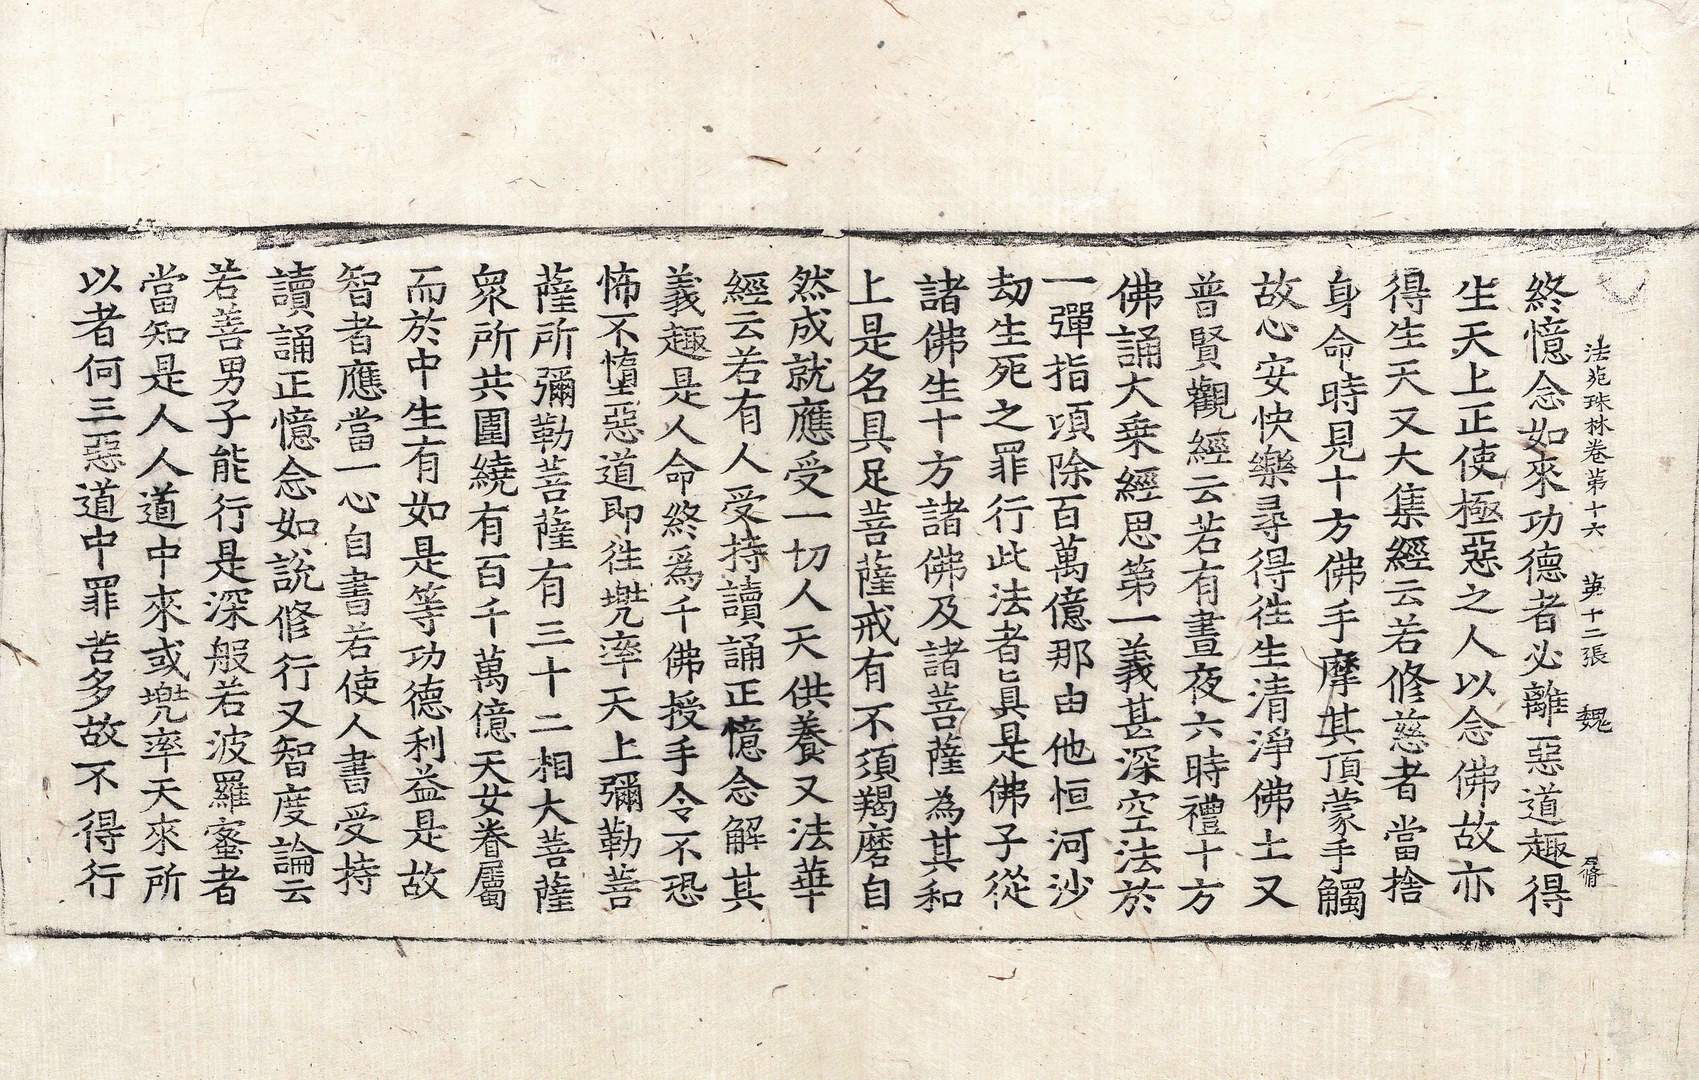 法苑珠林卷第十六 第十二張 魏
終憶念如來功德者必離惡道趣得
生天上正使極惡之人以念佛故亦
得生天又大集經云若修慈者當捨
身命時見十方佛手摩其頂蒙手觸
故心安快樂尋得徃生清淨佛土又
普賢觀經云若有晝夜六時禮十方
佛誦大乗經思第一義甚深空法於
一彈指頃除百萬億那由他恒河沙
劫生死之罪行此法者真是佛子從
諸佛生十方諸佛及諸菩薩為其和
上是名具足菩薩戒有不須羯磨自
然成就應受一切人天供養又法華
經云若有人受持讀誦正憶念解其
義趣是人命終爲千佛授手令不恐
怖不墮惡道即徃兠率天上彌勒菩
薩所彌勒菩薩有三十二相大菩薩
衆所共圍繞有百千萬億天女眷屬
而於中生有如是等功德利益是故
智者應當一心自書若使人書受持
讀誦正憶念如說修行又智度論云
若善男子能行是深般若波羅蜜者
當知是人人道中來或兠率天來所
以者何三惡道中罪苦多故不得行